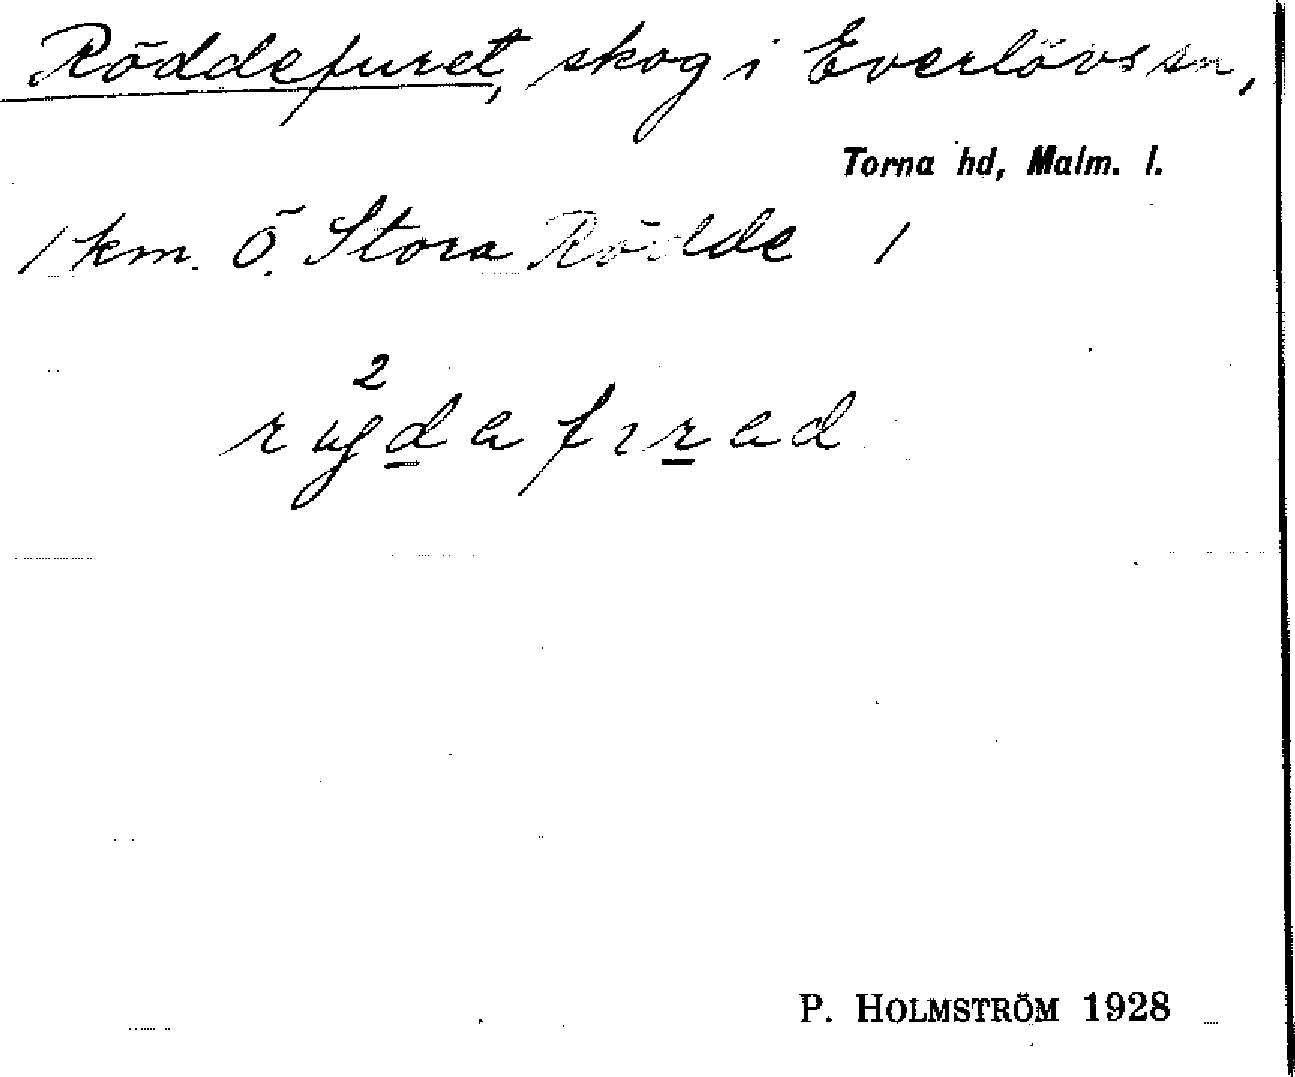 Röddefuret, skog i Everlövs sn,
Torna hd, Malm. l.
1 km. Ö. Stora Rödde 1
2
P. HOLMSTRÖM 1928